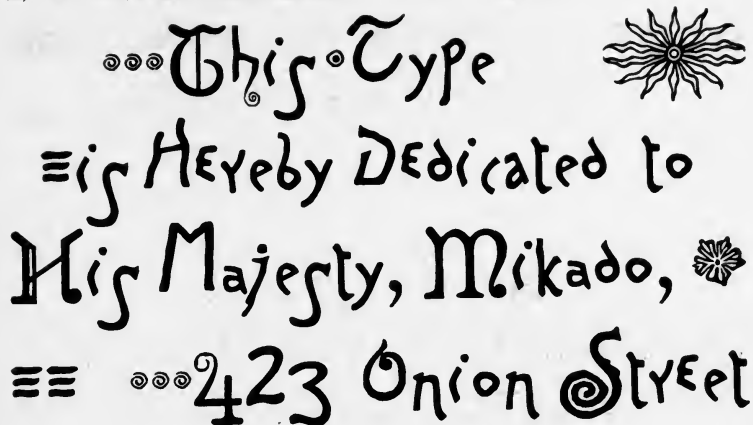 This Type
is Hereby Dedicated to
His Majesty, Mikado,
423 Onion Street